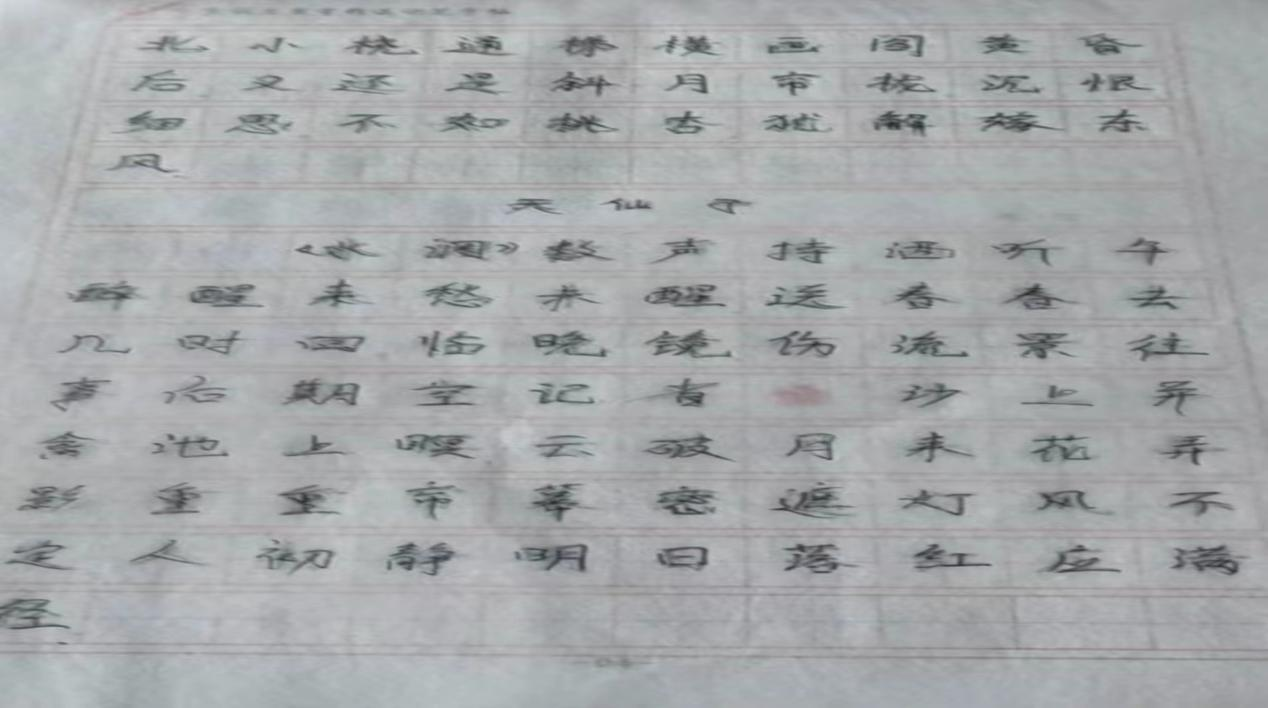 北小桡通桥横画阁黄昏
后又还是斜月帘栊沉恨
细思不如桃杏犹解嫁东
风
天仙子
《水调》数声持酒听午
醉醒来愁未醒送春春去
几时回临晚镜伤流景往
事后期空记省 沙上并
禽池上暝云破月来花弄
影重重帘幕密遮灯风不
定人初静明日落红应满
径